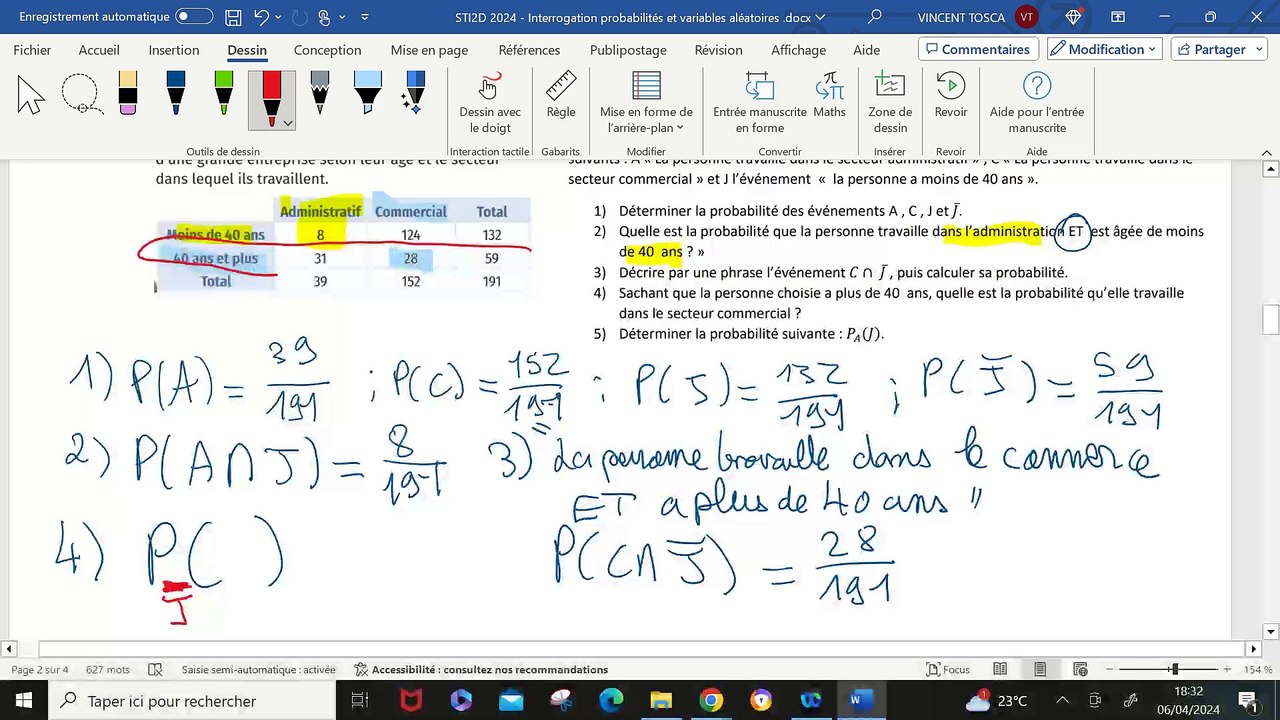 Enregistrement automatique
STI2D 2024 - Interrogation probabilités et variables aléatoires .docx
VINCENT TOSCA VT
Fichier Accueil Insertion Dessin Conception Mise en page Références Publipostage Révision Affichage Aide Commentaires Modification Partager
Dessin avec le doigt
Règle
Mise en forme de l'arrière-plan
Entrée manuscrite en forme
Maths
Zone de dessin
Revoir
Aide pour l'entrée manuscrite
Outils de dessin Interaction tactile Gabarits Modifier Convertir Insérer Revoir Aide
d'une grande entreprise selon leur âge et le secteur
dans lequel ils travaillent.
Administratif Commercial Total
Moins de 40 ans 8 124 132
40 ans et plus 31 28 59
Total 39 152 191
suivants : A « La personne travaille dans le secteur administratif » , C « La personne travaille dans le
secteur commercial » et J l'événement « la personne a moins de 40 ans ».
1) Déterminer la probabilité des événements A , C , J et J̅.
2) Quelle est la probabilité que la personne travaille dans l'administration ET est âgée de moins
de 40 ans ? »
3) Décrire par une phrase l'événement C ∩ J̅ , puis calculer sa probabilité.
4) Sachant que la personne choisie a plus de 40 ans, quelle est la probabilité qu'elle travaille
dans le secteur commercial ?
5) Déterminer la probabilité suivante : P_A(J).
1) P(A) = 39/191 ; P(C) = 152/191 ; P(J) = 132/191 ; P(J̅) = 59/191
2) P(A∩J) = 8/191 3) La personne travaille dans le commerce
ET a plus de 40 ans "
4) P_J̅( ) P(C∩J̅) = 28/191
Page 2 sur 4 627 mots Saisie semi-automatique : activée Accessibilité : consultez nos recommandations Focus 154 %
Taper ici pour rechercher
23°C
18:32
06/04/2024